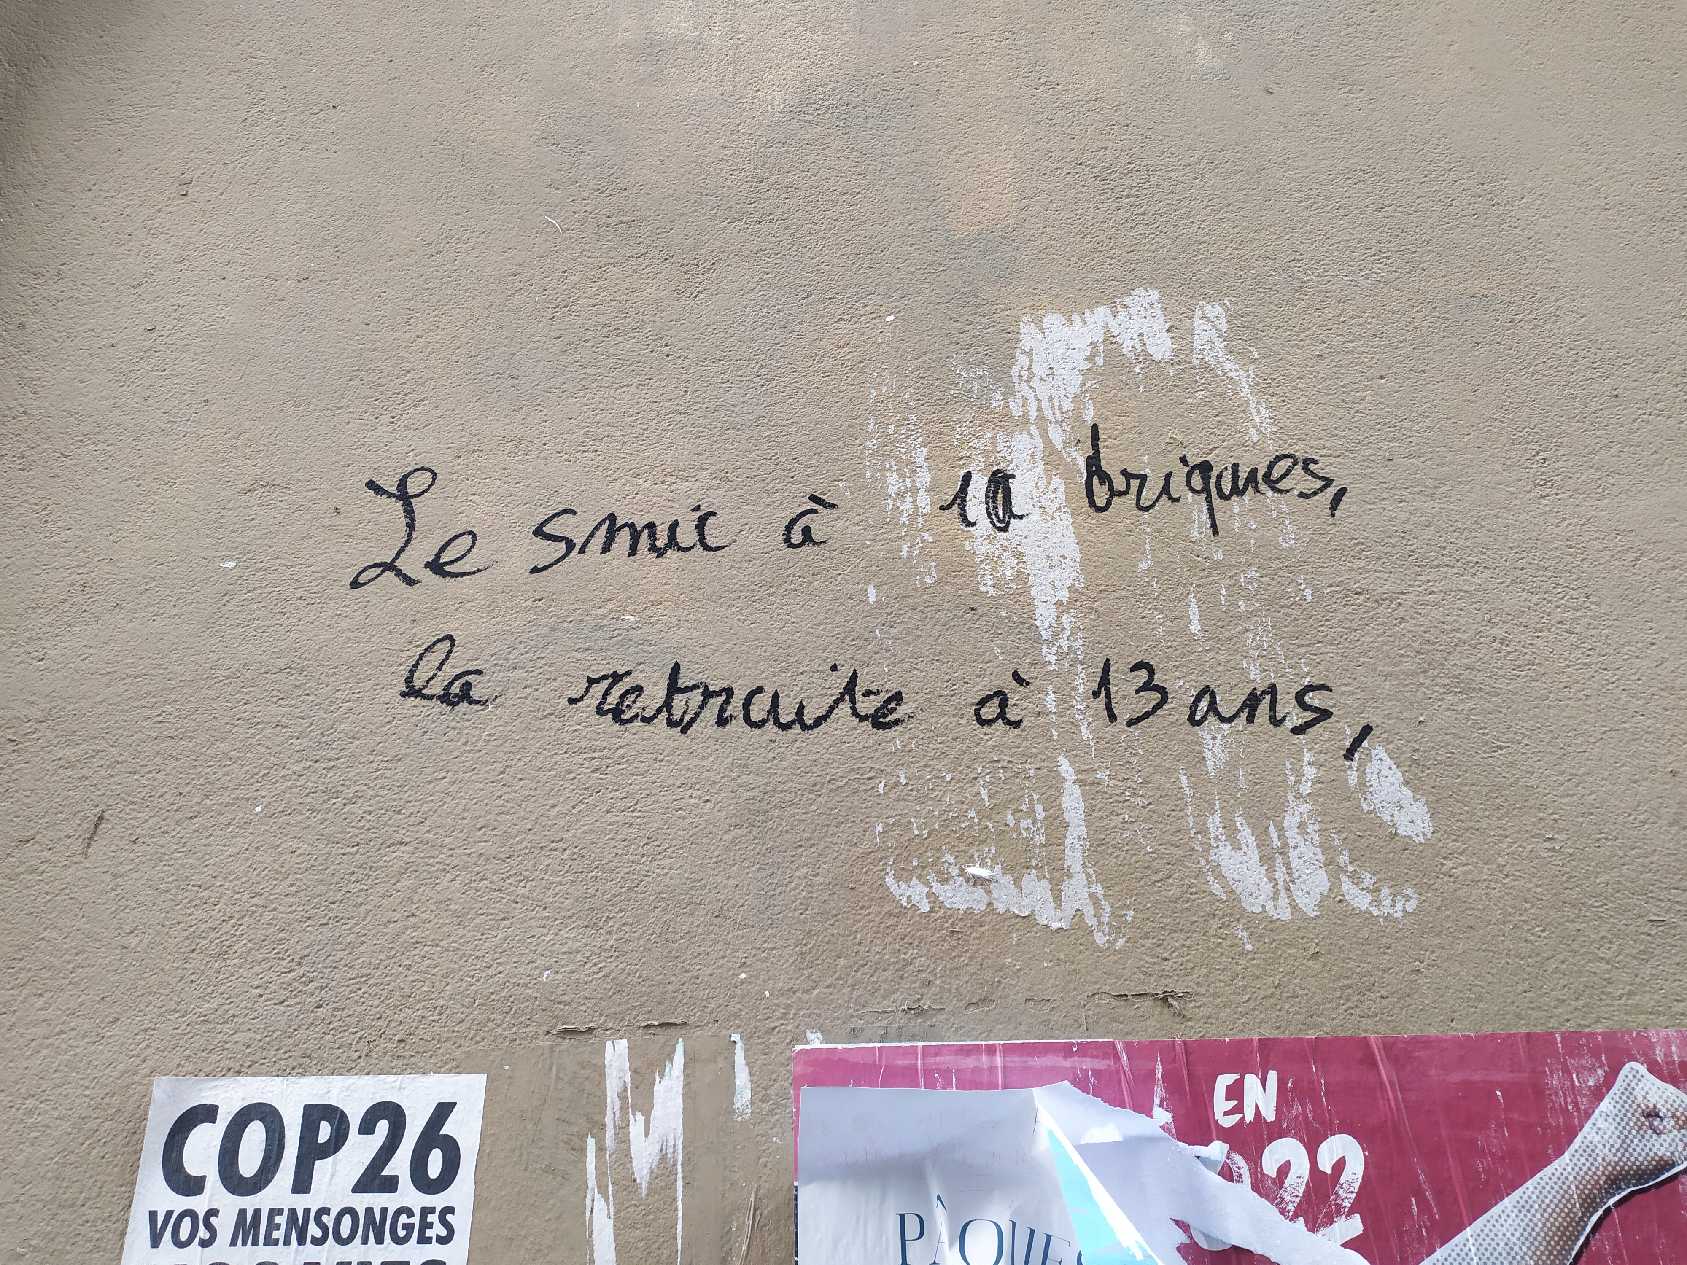 Le smic à 10 briques,
la retraite à 13 ans,
COP26
VOS MENSONGES
EN
PÂQUES